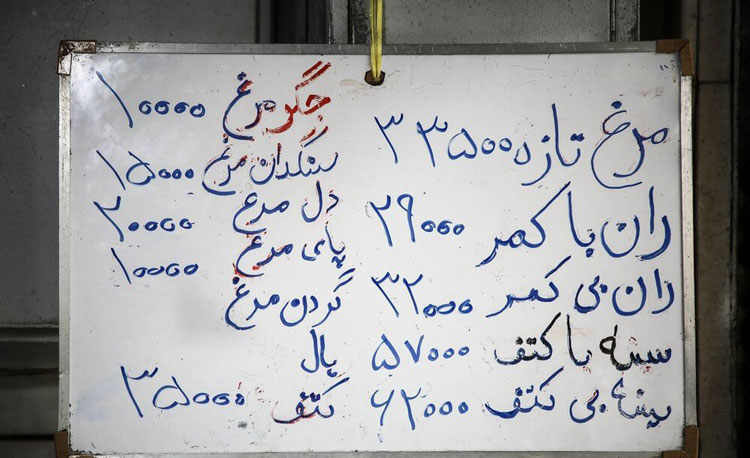 مرغ تازه ۳۳۵۰۰
ران با کمر ۲۹۰۰۰
ران بی کمر ۳۲۰۰۰
سینه با کتف ۵۷۰۰۰
سینه بی کتف ۶۲۰۰۰
جگر مرغ ۱۰۰۰۰
سنگدان مرغ ۱۵۰۰۰
دل مرغ ۲۰۰۰۰
پای مرغ ۱۰۰۰۰
گردن مرغ
بال
کتف ۳۵۰۰۰